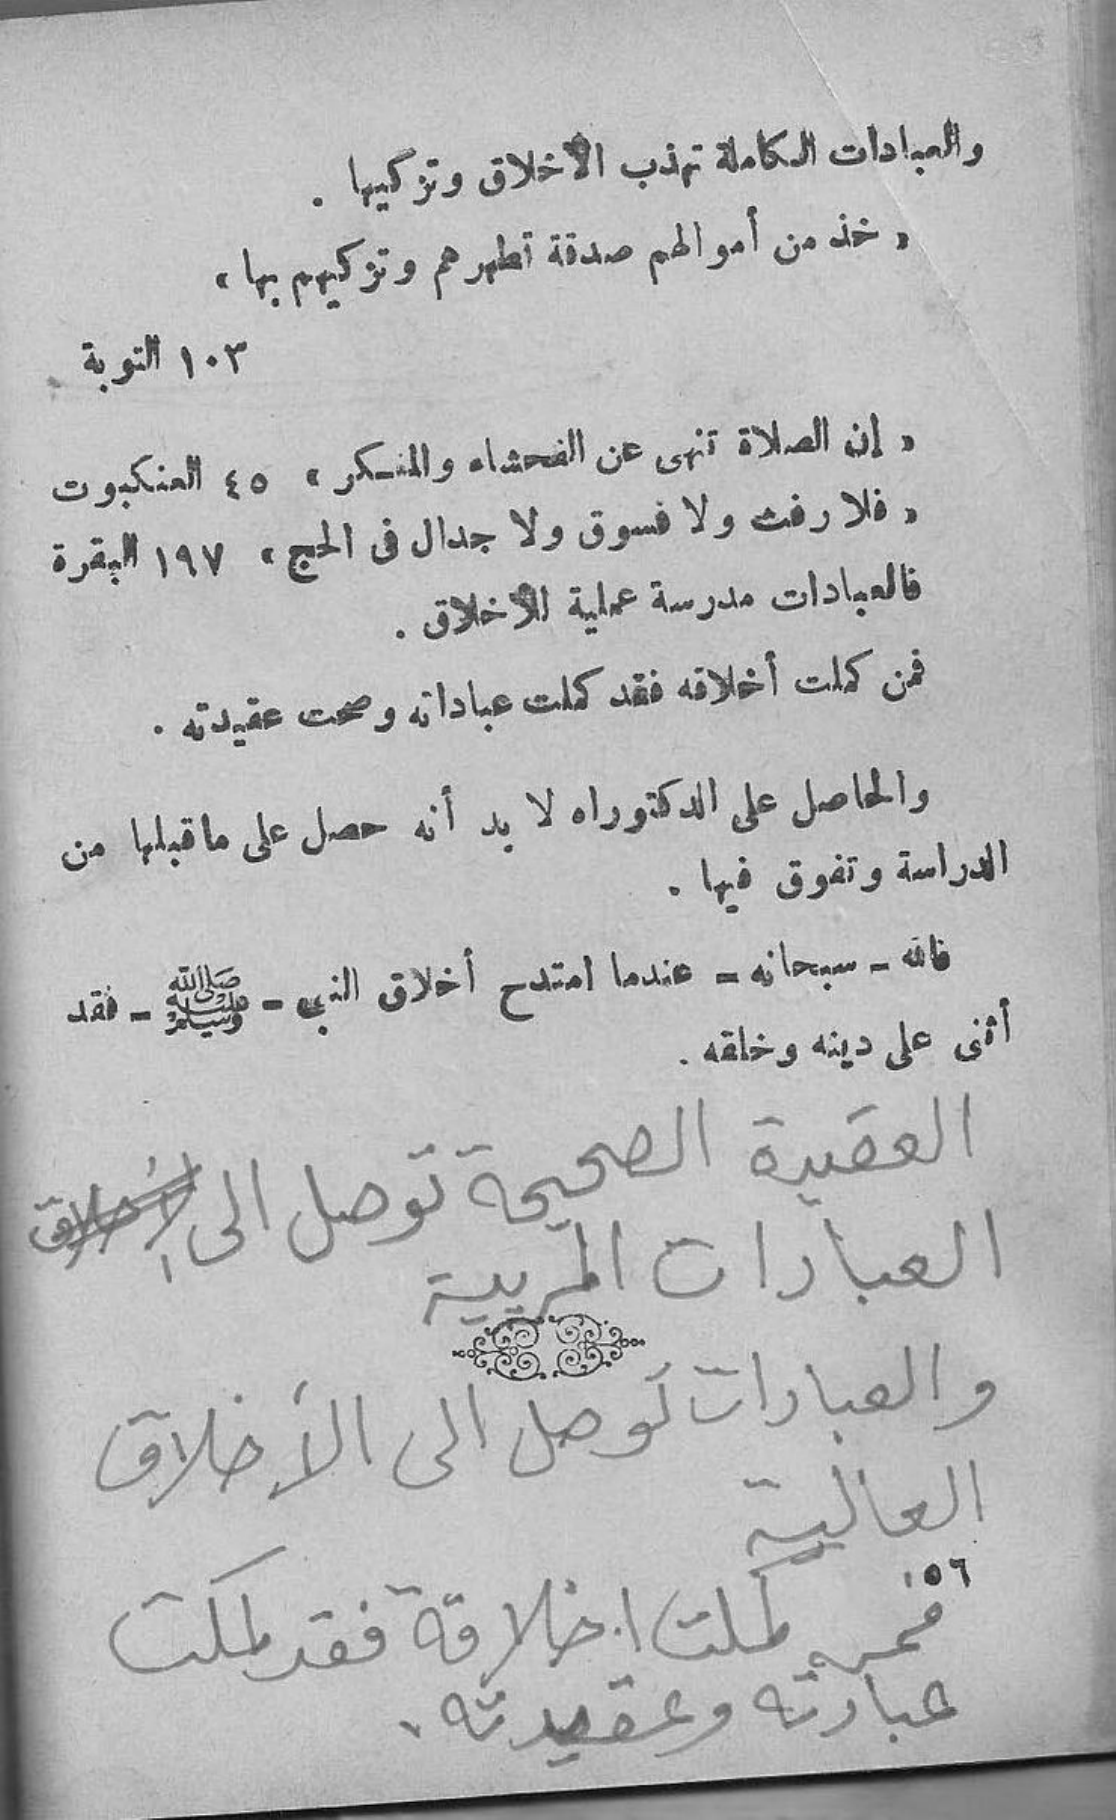 والعبادات الكاملة تهذب الأخلاق وتزكيها .
« خذ من أموالهم صدقة تطهرهم وتزكيهم بها »
١٠٣ التوبة
« إن الصلاة تنهى عن الفحشاء والمنكر » ٤٥ العنكبوت
« فلا رفث ولا فسوق ولا جدال فى الحج » ١٩٧ البقرة
فالعبادات مدرسة عملية للأخلاق .
فمن كملت أخلاقه فقد كملت عباداته وصحت عقيدته .
والحاصل على الدكتوراه لا بد أنه حصل على ماقبلها من
الدراسة وتفوق فيها .
فالله - سبحانه - عندما امتدح أخلاق النبى - ﷺ - فقد
أثنى على دينه وخلقه .
العقيدة الصحيحة توصل الى الأخلاق
العبادات المربية
والعبادات توصل الى الأخلاق
العالية
١٥٦
فمن كملت اخلاقة فقد كملت
عبادته وعقيدته .